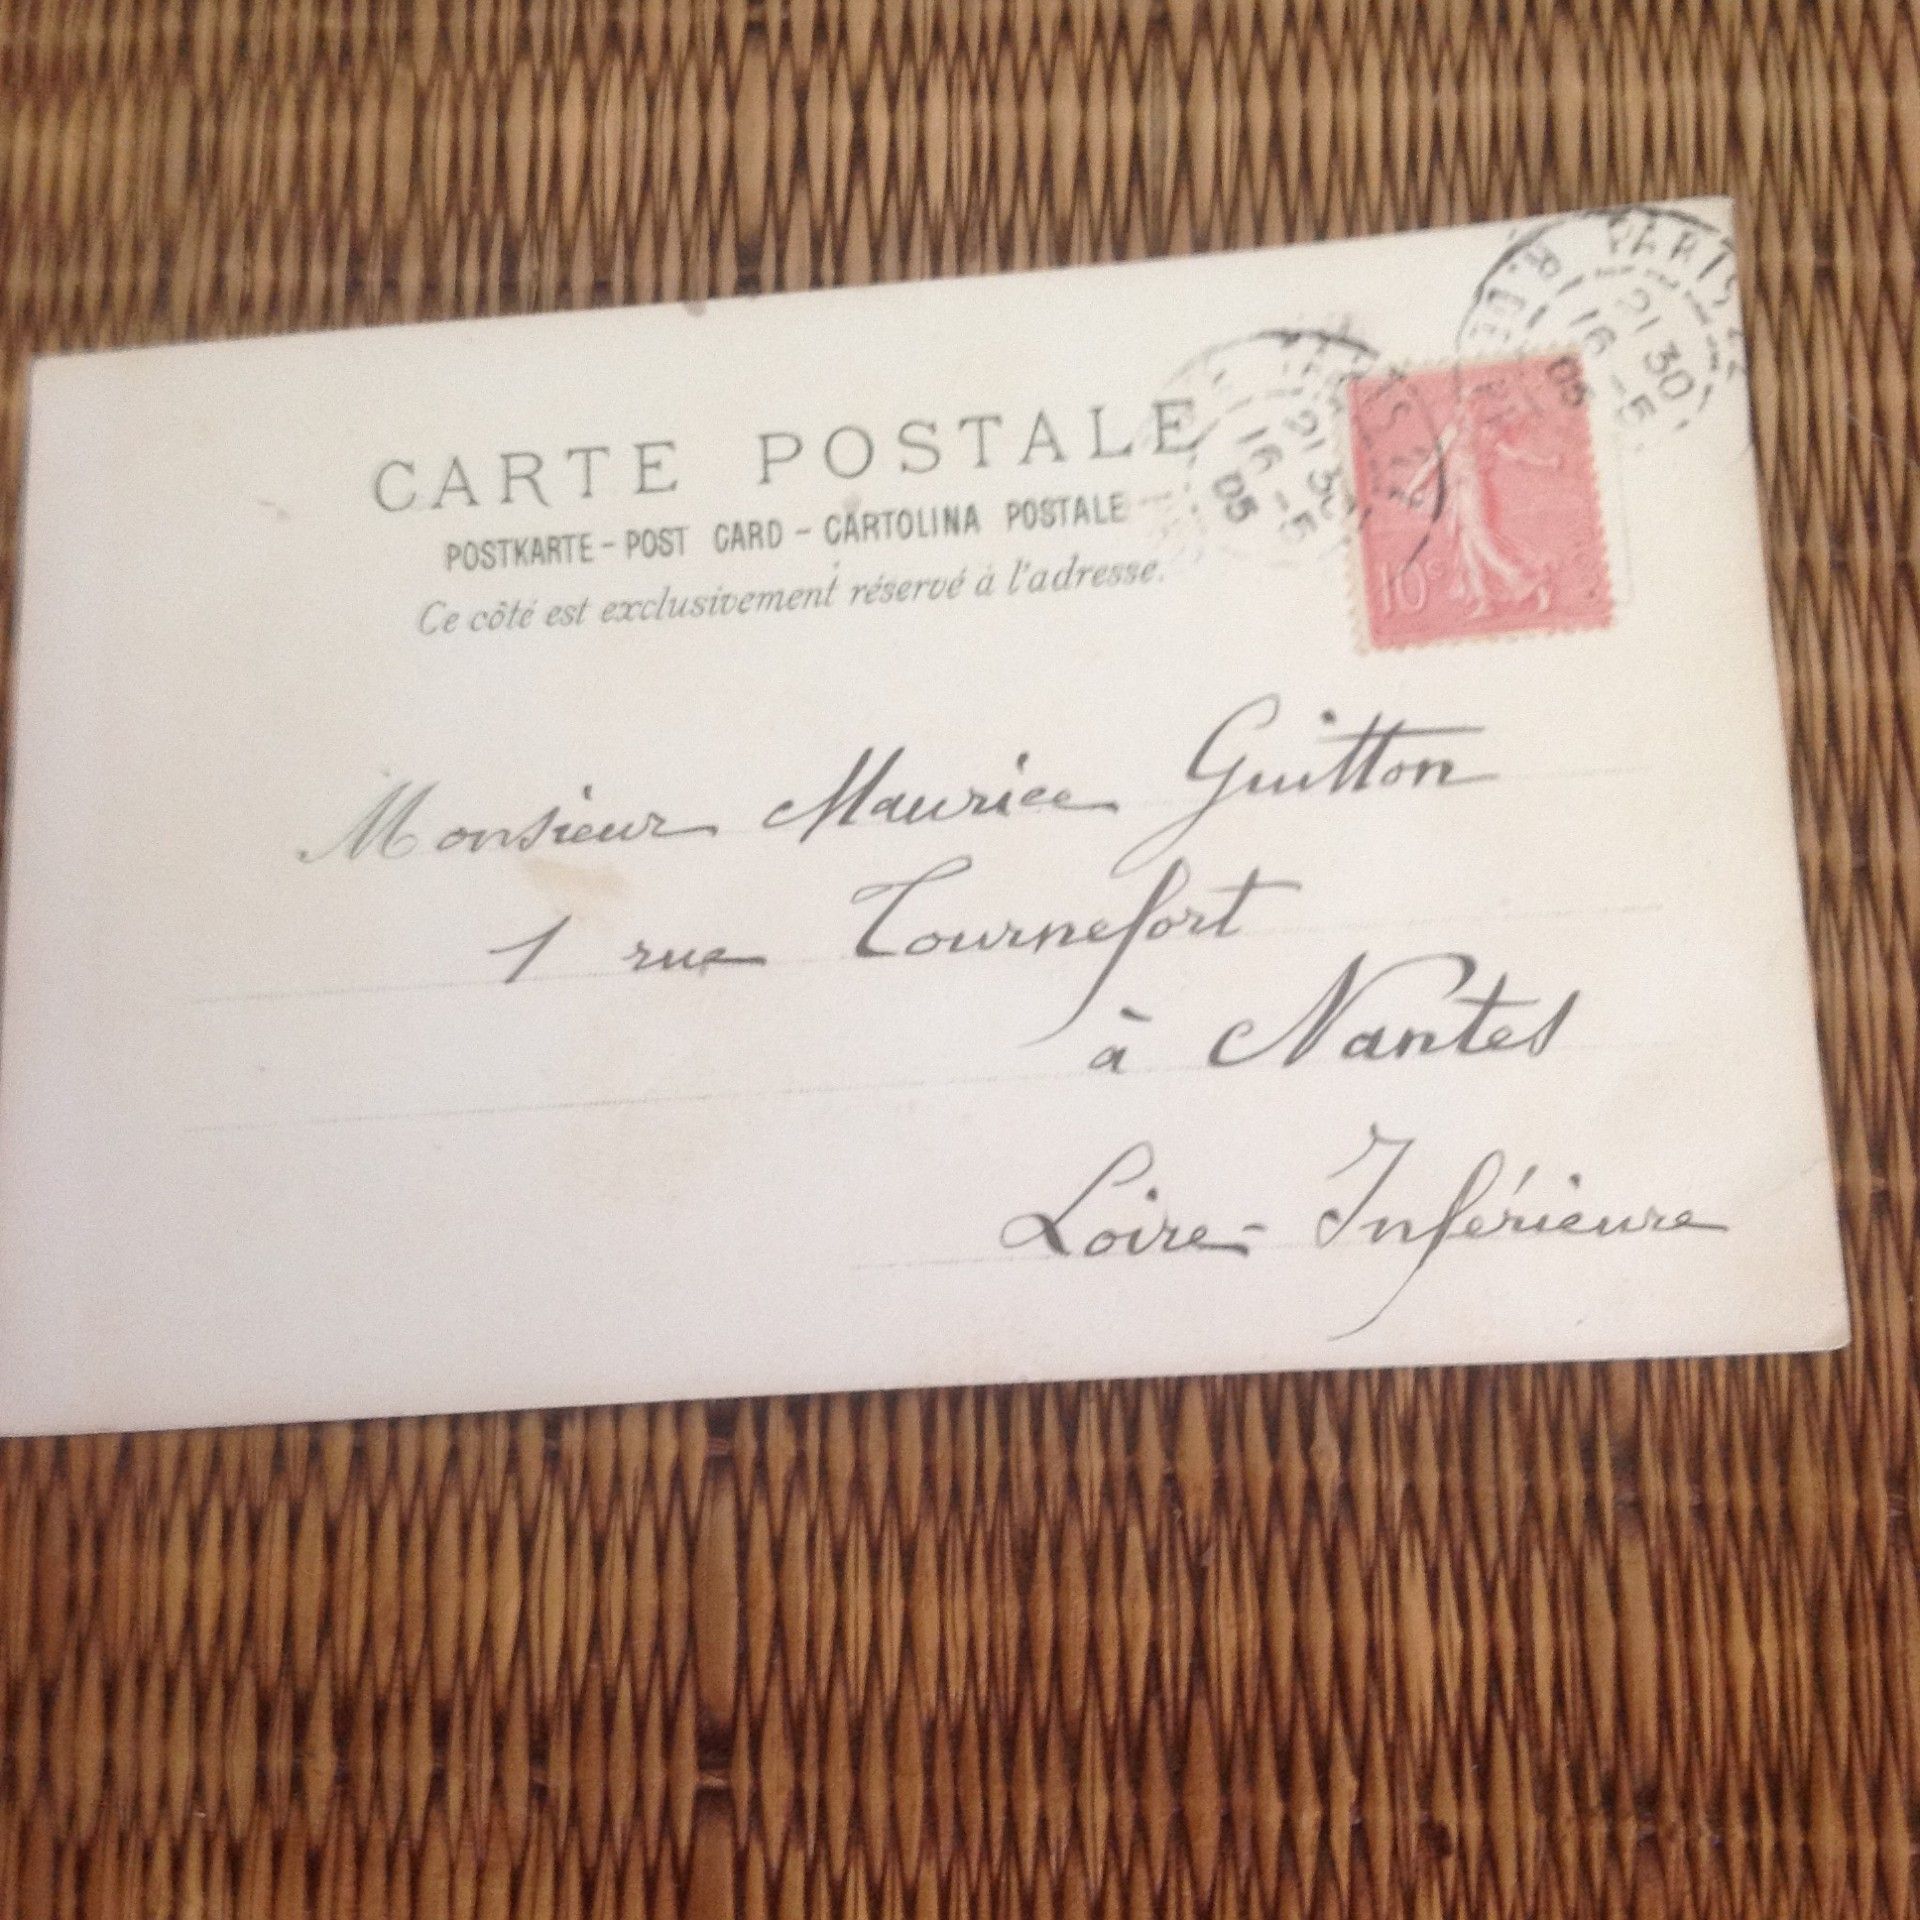 CARTE POSTALE
POSTKARTE - POST CARD - CARTOLINA POSTALE
Ce côté est exclusivement réservé à l'adresse.
PARIS
21 30
16 - 5
05
21 30
16 - 5
05
10c
Monsieur Maurice Guitton
1 rue Tournefort
à Nantes
Loire-Inférieure